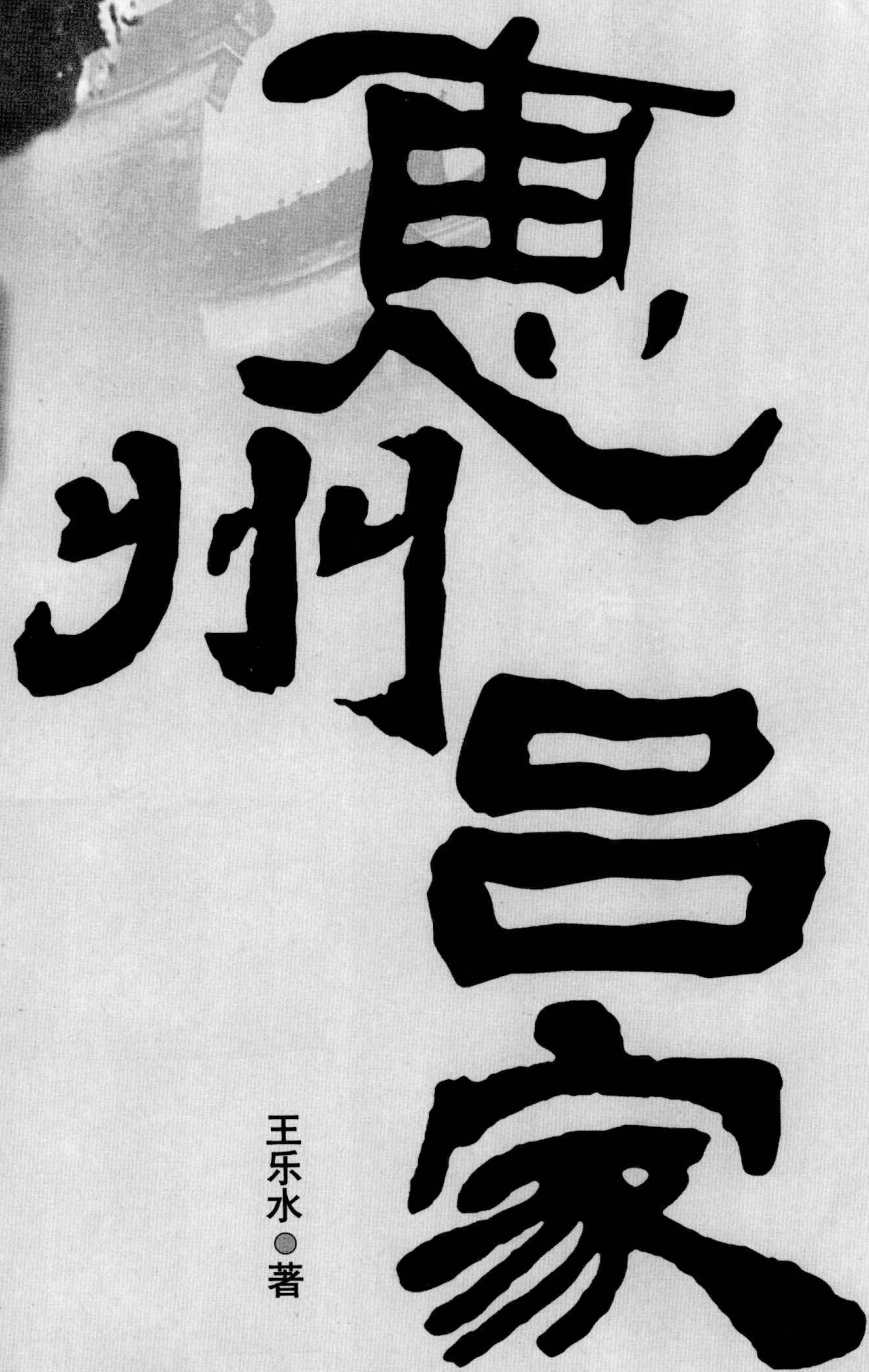 惠州吕家
王乐水●著